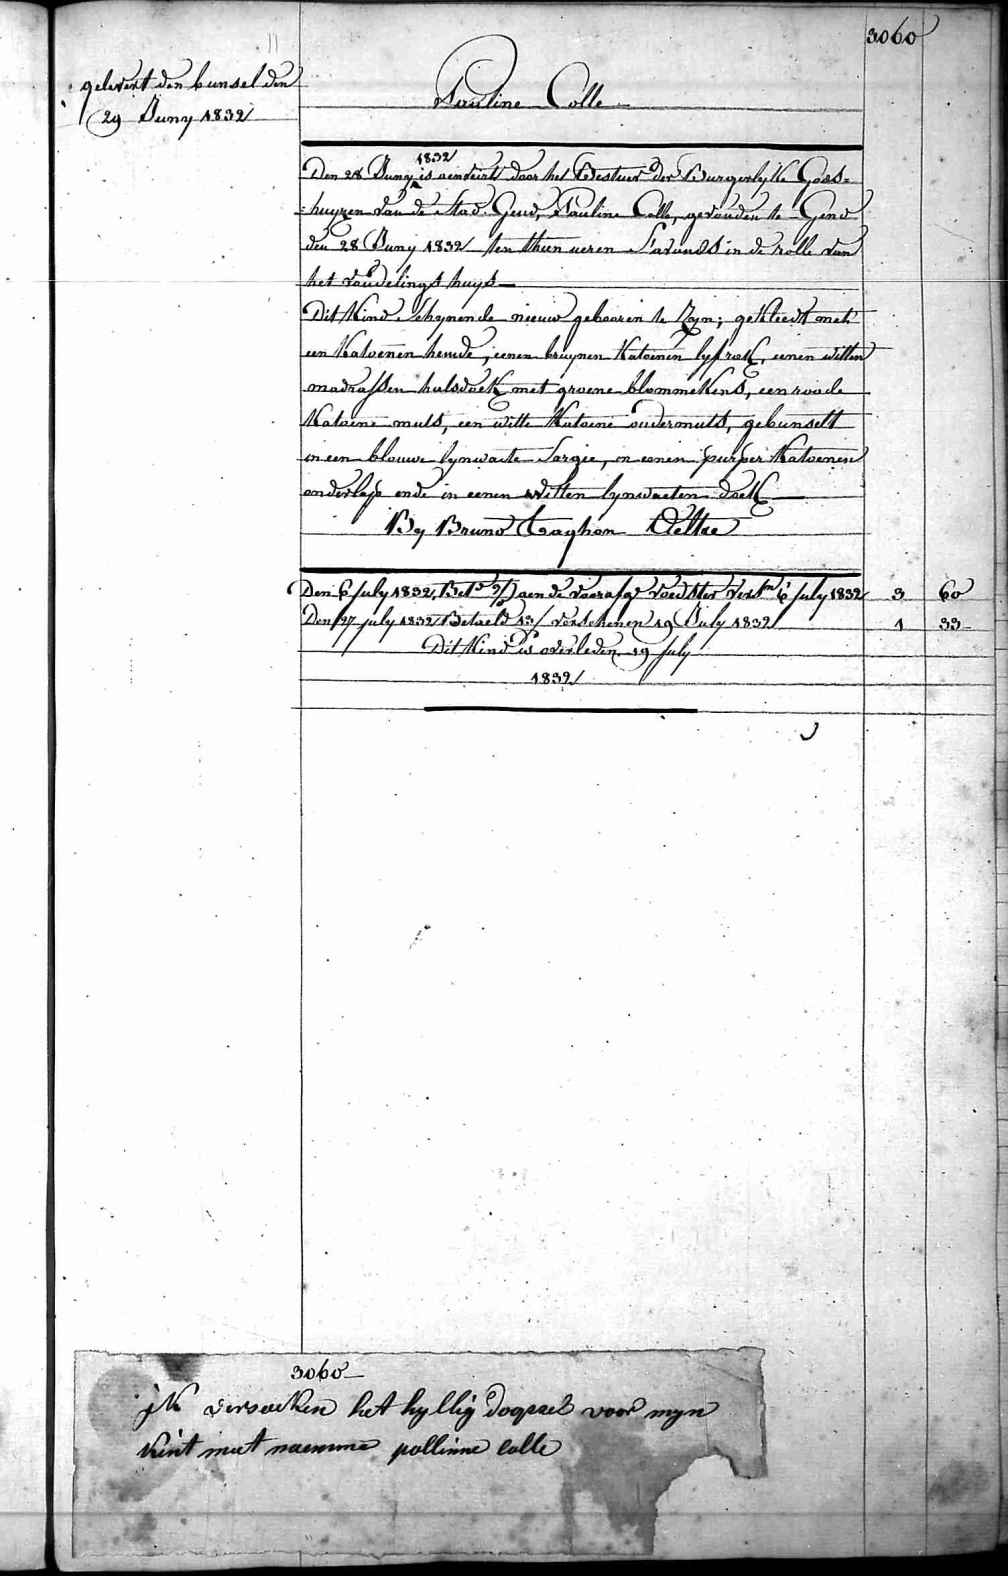 3060
gelevert den bunsel den
29 Juny 1832
Pauline Colle
1832
Den 28 Juny is aenveird door het Bestuer der Burgerlyke Gods=
=huyzen van de Stad Gend, Pauline Colle, gevonden te Gend
den 28 Juny 1832 ten thien ueren S'avonds in de rolle van
het vondelings huys
Dit Kind schynende nieuw gebooren te Zyn; gekleedt met
een Katoenen hemde, eenen bruynen Katoenen lyfrok, eenen witten
madrassen halsdoek met groene blommekens, een roode
Katoene muts, een witte Katoene ondermuts, gebunselt
in een blouwe lynwaete Sargie, en eenen purper Katoenen
onderlap ende in eenen witten lynwaeten doek
By Bruno Taghon Deltre
Den 6 July 1832, Bet.d aen de voorafg.e voedster versch.n 6 July 1832 3 60
Den 27 july 1832 Betaeld 13/ verschenen 19 July 1832 1 33
Dit Kind is overleden 19 July
1832
3060
jk versoeken het hyllig doopsel voor myn
kint met naemme pollinne colle